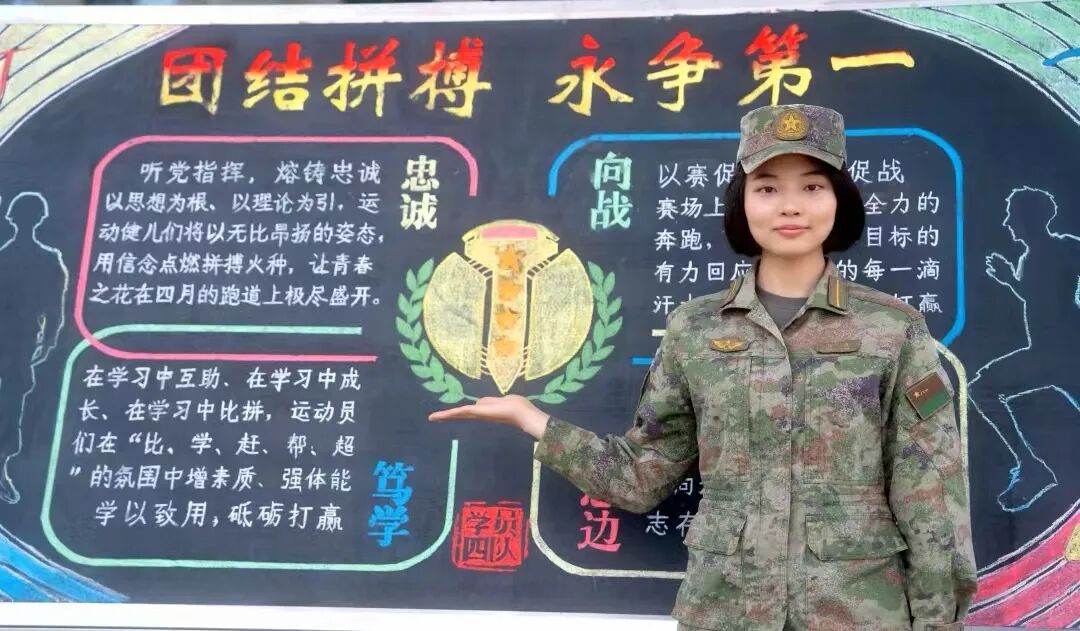 团结拼搏 永争第一
忠诚
听党指挥，熔铸忠诚
以思想为根、以理论为引，运
动健儿们将以无比昂扬的姿态，
用信念点燃拼搏火种，让青春
之花在四月的跑道上极尽盛开。
向战
以赛促 促战
赛场上 全力的
奔跑， 目标的
有力回应 的每一滴
汗 打赢
在学习中互助、在学习中成
长、在学习中比拼，运动员
们在“比、学、赶、帮、超
”的氛围中增素质、强体能
学以致用，砥砺打赢
笃学
边
志存
学员
四队